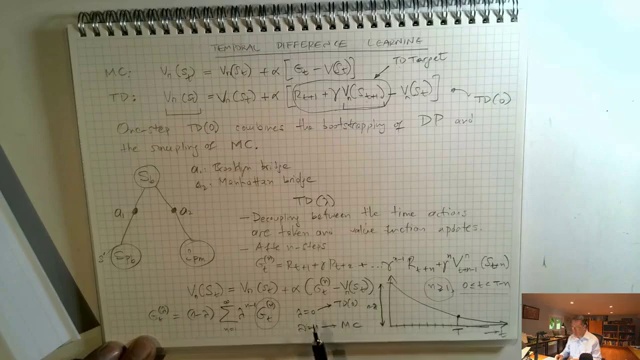 TEMPORAL DIFFERENCE LEARNING
MC: Vπ(St) = Vπ(St) + α [Gt − V(St)]
TD Target
TD: Vπ(St) = Vπ(St) + α [Rt+1 + γ Vπ(St+1) − Vπ(St)] TD(0)
One-step TD(0) combines the bootstrapping of DP and
the sampling of MC.
a1: Brooklyn bridge
a2: Manhattan bridge
Sb
TD(λ)
a1 a2
- Decoupling between the time actions
are taken and value function updates.
s'
- After n-steps
Gt(n) = Rt+1 + γ Rt+2 + ... γn-1 Rt+n + γn V
Vπ(St) = Vπ(St) + α (Gt(n) − V(St))
n≥1
Gt(λ) = (1-λ) ∑ λn-1 Gt(n)
n=1
λ=0 → TD(0)
→ MC
T